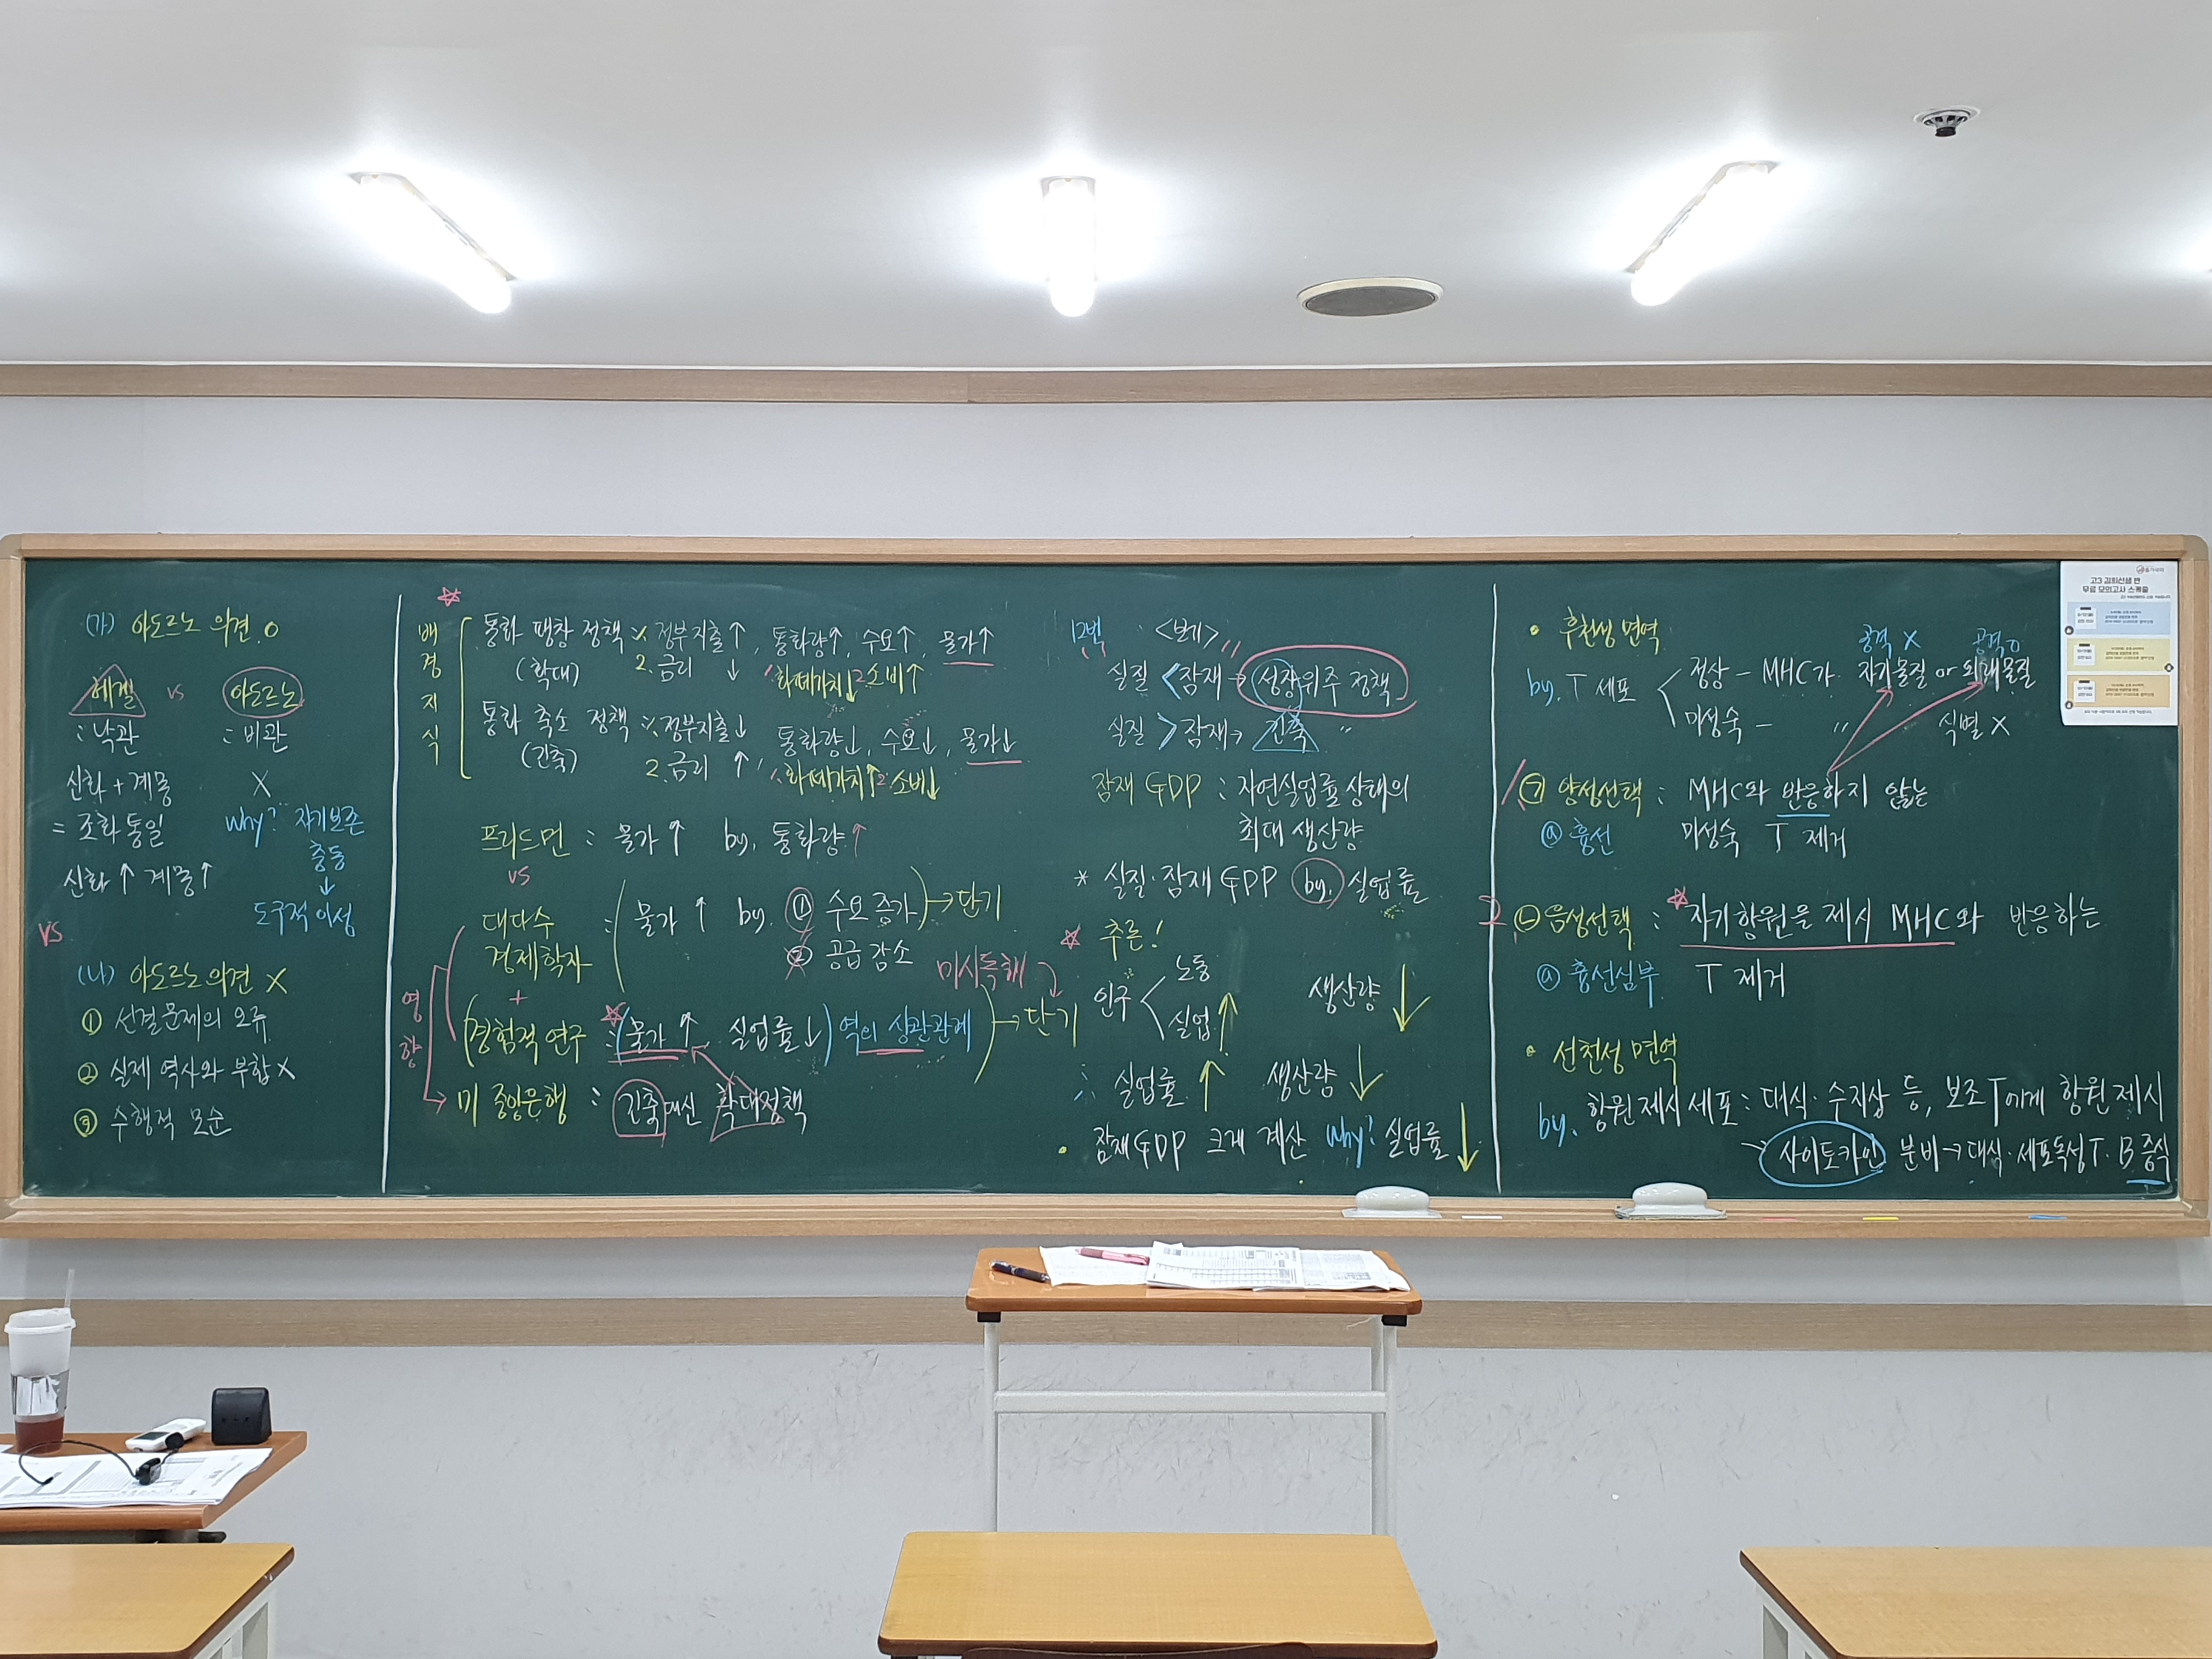 (가) 아도르노 의견 O
헤겔 vs 아도르노
: 낙관 : 비관
신화 + 계몽 X
= 조화통일 Why? 자기보존
충동
↓
신화↑ 계몽↑
도구적 이성
VS
(나) 아도르노 의견 X
① 선결문제의 오류
② 실제 역사와 부합 X
③ 수행적 모순
배경지식
통화 팽창 정책 1. 정부지출↑, 통화량↑, 수요↑, 물가↑
(확대) 2. 금리 ↓ 1. 화폐가치↓ 2. 소비↑
통화 축소 정책 1. 정부지출↓ 통화량↓, 수요↓, 물가↓
(긴축) 2. 금리 ↑ 1. 화폐가치↑ 2. 소비↓
프리드먼 : 물가↑ by. 통화량↑
VS
대다수
경제학자 : 물가↑ by. ① 수요 증가 → 단기
② 공급 감소
미시독해
+
(경험적 연구 : (물가↑ 실업률↓) 역의 상관관계) → 단기
영향
→ 미 중앙은행 : 긴축대신 확대정책
12번 <보기>
실질 < 잠재 → 성장위주 정책
실질 > 잠재 → 긴축 〃
잠재 GDP : 자연실업률 상태의
최대 생산량
* 실질·잠재 GDP by. 실업률
추론!
인구 < 노동
실업↑ 생산량↓
∴ 실업률↑ 생산량↓
• 잠재GDP 크게 계산 Why? 실업률↓
• 후천생 면역
공격 X 공격 O
by. T 세포
정상 - MHC가 자기물질 or 외래물질
미성숙 - 〃 식별 X
1 ㉠ 양성선택 : MHC와 반응하지 않는
@ 흉선 미성숙 T 제거
2 ㉡ 음성선택 : 자기항원을 제시 MHC와 반응하는
@ 흉선심부 T 제거
• 선천성 면역
by. 항원제시세포 : 대식·수지상 등, 보조T에게 항원 제시
→ 사이토카인 분비 → 대식·세포독성T·B 증식
고3 김희선생 반
무료 모의고사 스케줄